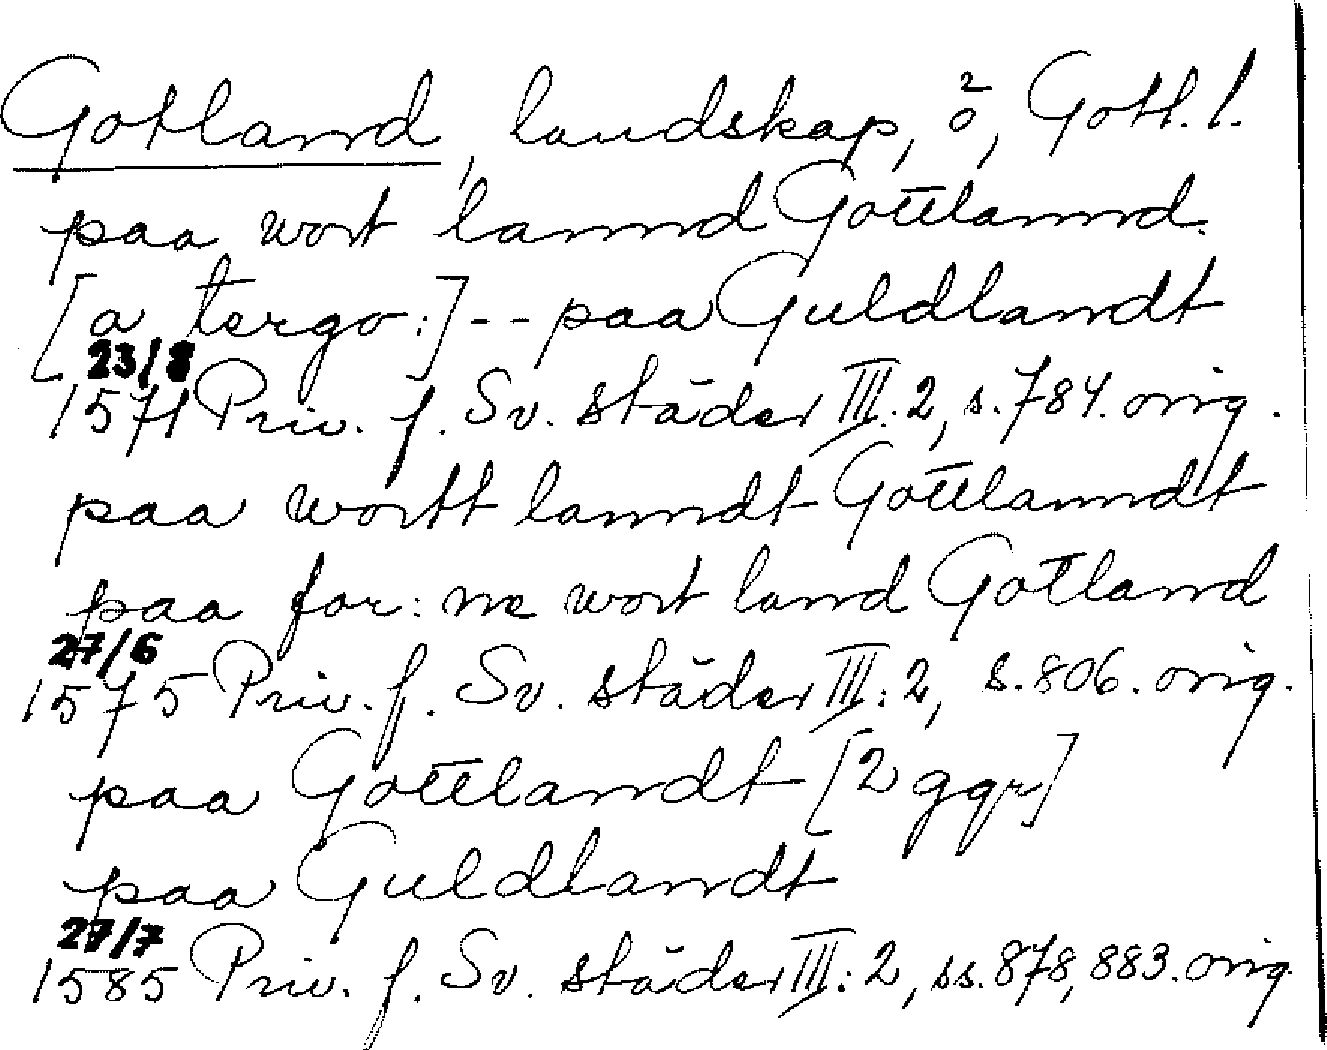 Gotland, landskap, ö, Gotl. l.
paa wort lannd Gottlannd.
[a tergo:] -- paa Guldlandt
23/8
1571 Priv. f. Sv. städer III:2, s. 784. orig.
paa wortt lanndt Gottlanndt
paa for:ne wort land Gotland
27/6
1575 Priv. f. Sv. städer III:2, s. 806. orig.
paa Gottlandt [2 ggr]
paa Guldlandt
27/7
1585 Priv. f. Sv. städer III:2, ss. 878, 883. orig.